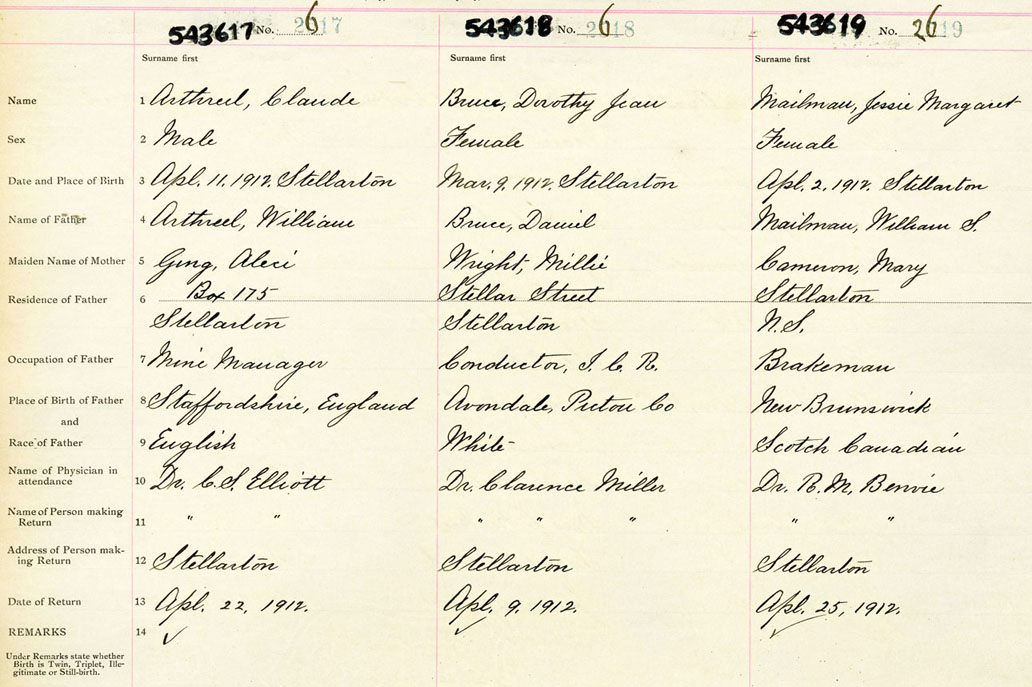 543617 No. 2617 543618 No. 2618 543619 No. 2619
Surname first Surname first Surname first
Name 1 Arthrell, Claude Bruce, Dorothy Jean Mailman, Jessie Margaret
Sex 2 Male Female Female
Date and Place of Birth 3 Apl. 11. 1912. Stellarton Mar. 9. 1912. Stellarton Apl. 2. 1912. Stellarton
Name of Father 4 Arthreel, William Bruce, Daniel Mailman, William S.
Maiden Name of Mother 5 Aleci Wright, Millie Cameron, Mary
Residence of Father 6 Box 175 Stellar Street Stellarton
Stellarton Stellarton N.S.
Occupation of Father 7 Mine Manager Conductor, I. C. R. Brakeman
Place of Birth of Father 8 Staffordshire, England Avondale, Pictou Co New Brunswick
and
Race of Father 9 English White Scotch Canadian
Name of Physician in
attendance 10 Dr. C. S. Elliott Dr. Clarence Miller Dr. R. M. Benvie
Name of Person making
Return 11 " " " " " " "
Address of Person mak-
ing Return 12 Stellarton Stellarton Stellarton
Date of Return 13 Apl. 22, 1912. Apl. 9. 1912. Apl. 25, 1912.
REMARKS 14 ✓ ✓ ✓
Under Remarks state whether
Birth is Twin, Triplet, Ille-
gitimate or Still-birth.